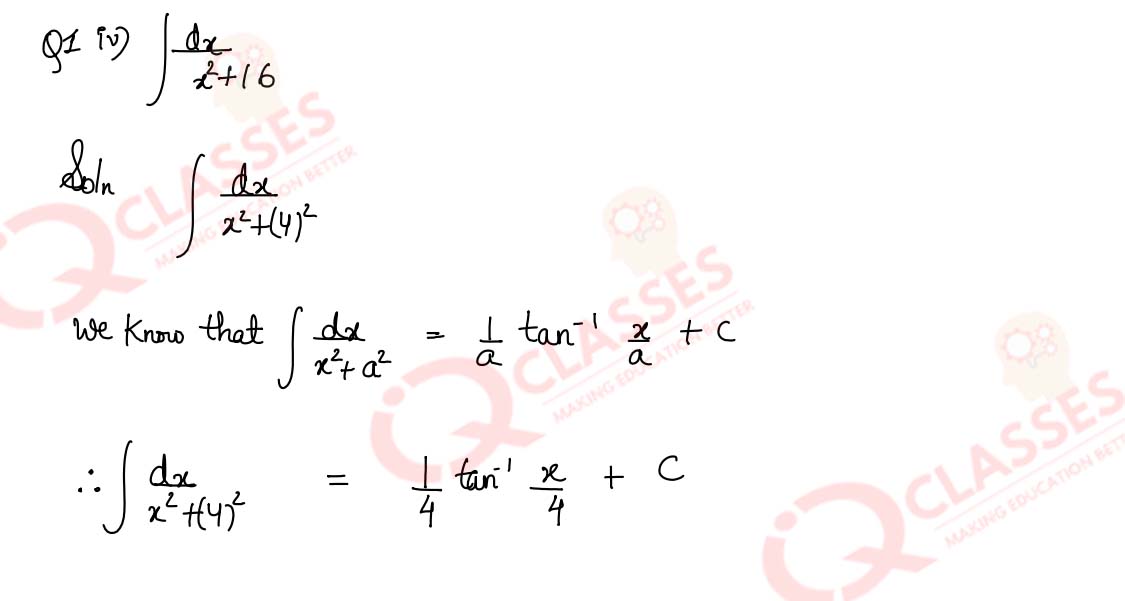 Q1 iv) ∫ dx / x²+16
Soln ∫ dx / x²+(4)²
We Know that ∫ dx / x²+a² = 1/a tan⁻¹ x/a + C
∴ ∫ dx / x²+(4)² = 1/4 tan⁻¹ x/4 + C
iQ CLASSES
MAKING EDUCATION BETTER
iQ CLASSES
MAKING EDUCATION BETTER
iQ CLASSES
MAKING EDUCATION BETTER